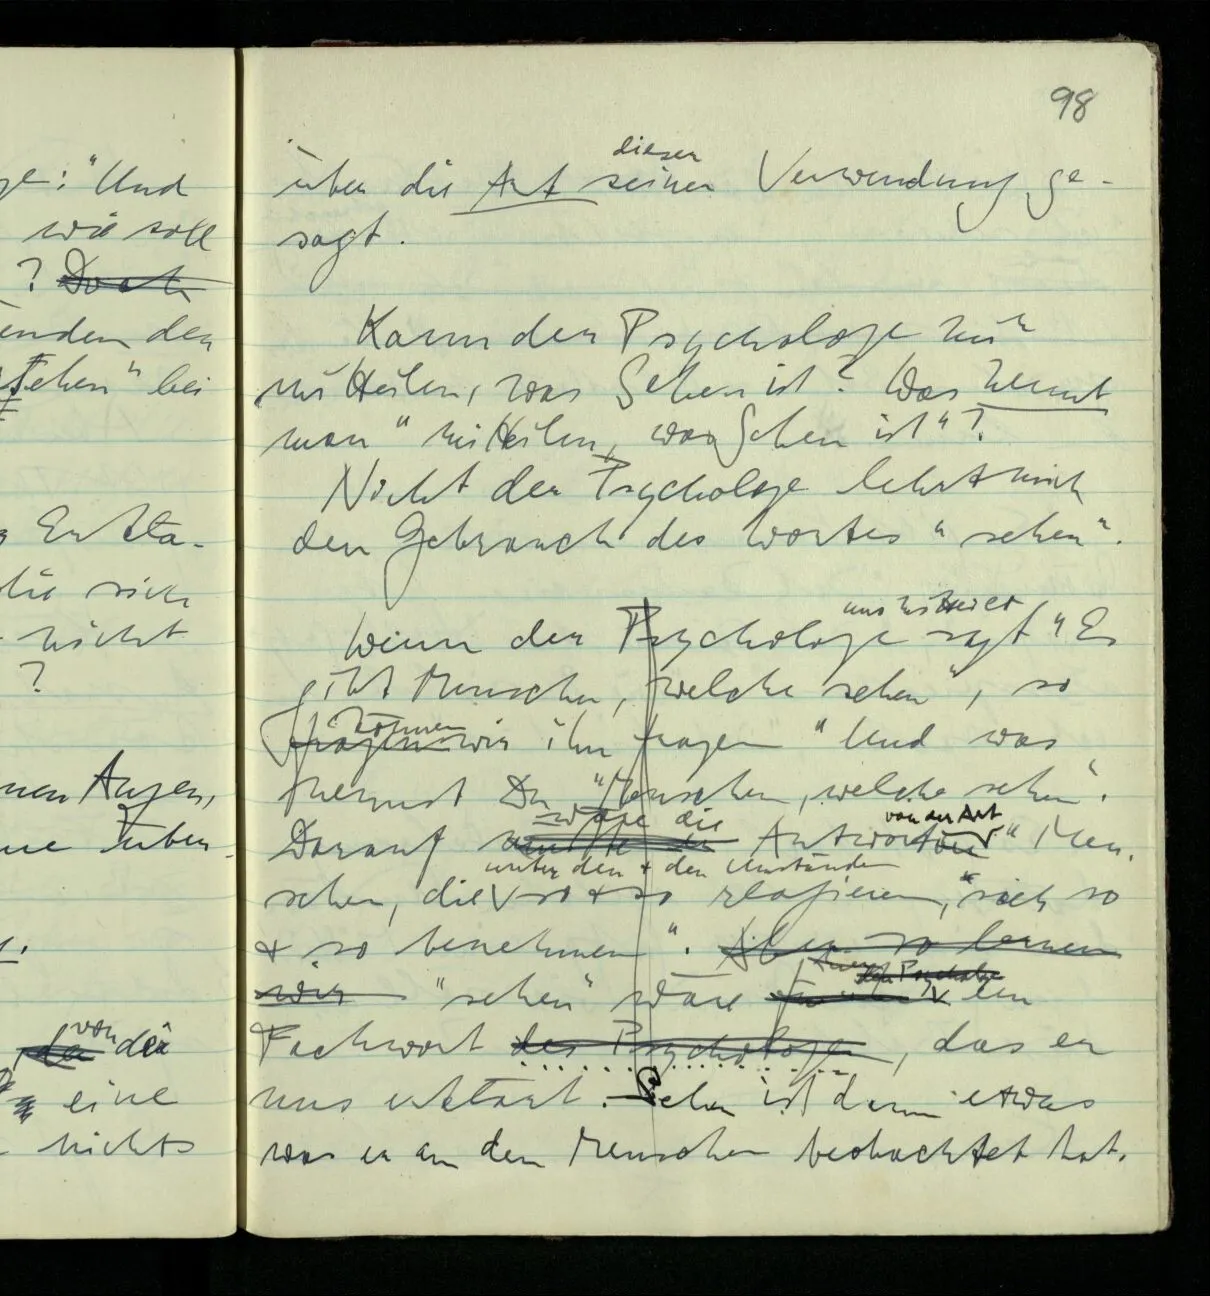 98
ge: "Und
wie soll
? Doch
enden der
sehen" bei
Entta-
die sich
nicht
?
nen Augen,
ne Tuben
da von der
eine
nichts
dieser
über die Art seiner Verwendung ge-
sagt.
Kann der Psychologe mir
mitteilen, was Sehen ist? Was nennt
man "mitteilen, was Sehen ist"?
Nicht der Psychologe lehrt mich
den Gebrauch des Wortes "sehen".
uns mitteilt
Wenn der Psychologe sagt "Es
gibt Menschen, welche sehen", so
können
fragen wir ihn fragen "Und was
nennst Du "Menschen, welche sehen".
wäre die von der Art
Darauf müßte er Antworten "Men-
unter den + den Umständen
schen, die so + so reagieren, "sich so
+ so benehmen". Aber so lernen
der Psychologe
wir "sehen" wäre ein
Fachwort des Psychologen, das er
uns erklärt. Sehen ist dann etwas
was er an den Menschen beobachtet hat.